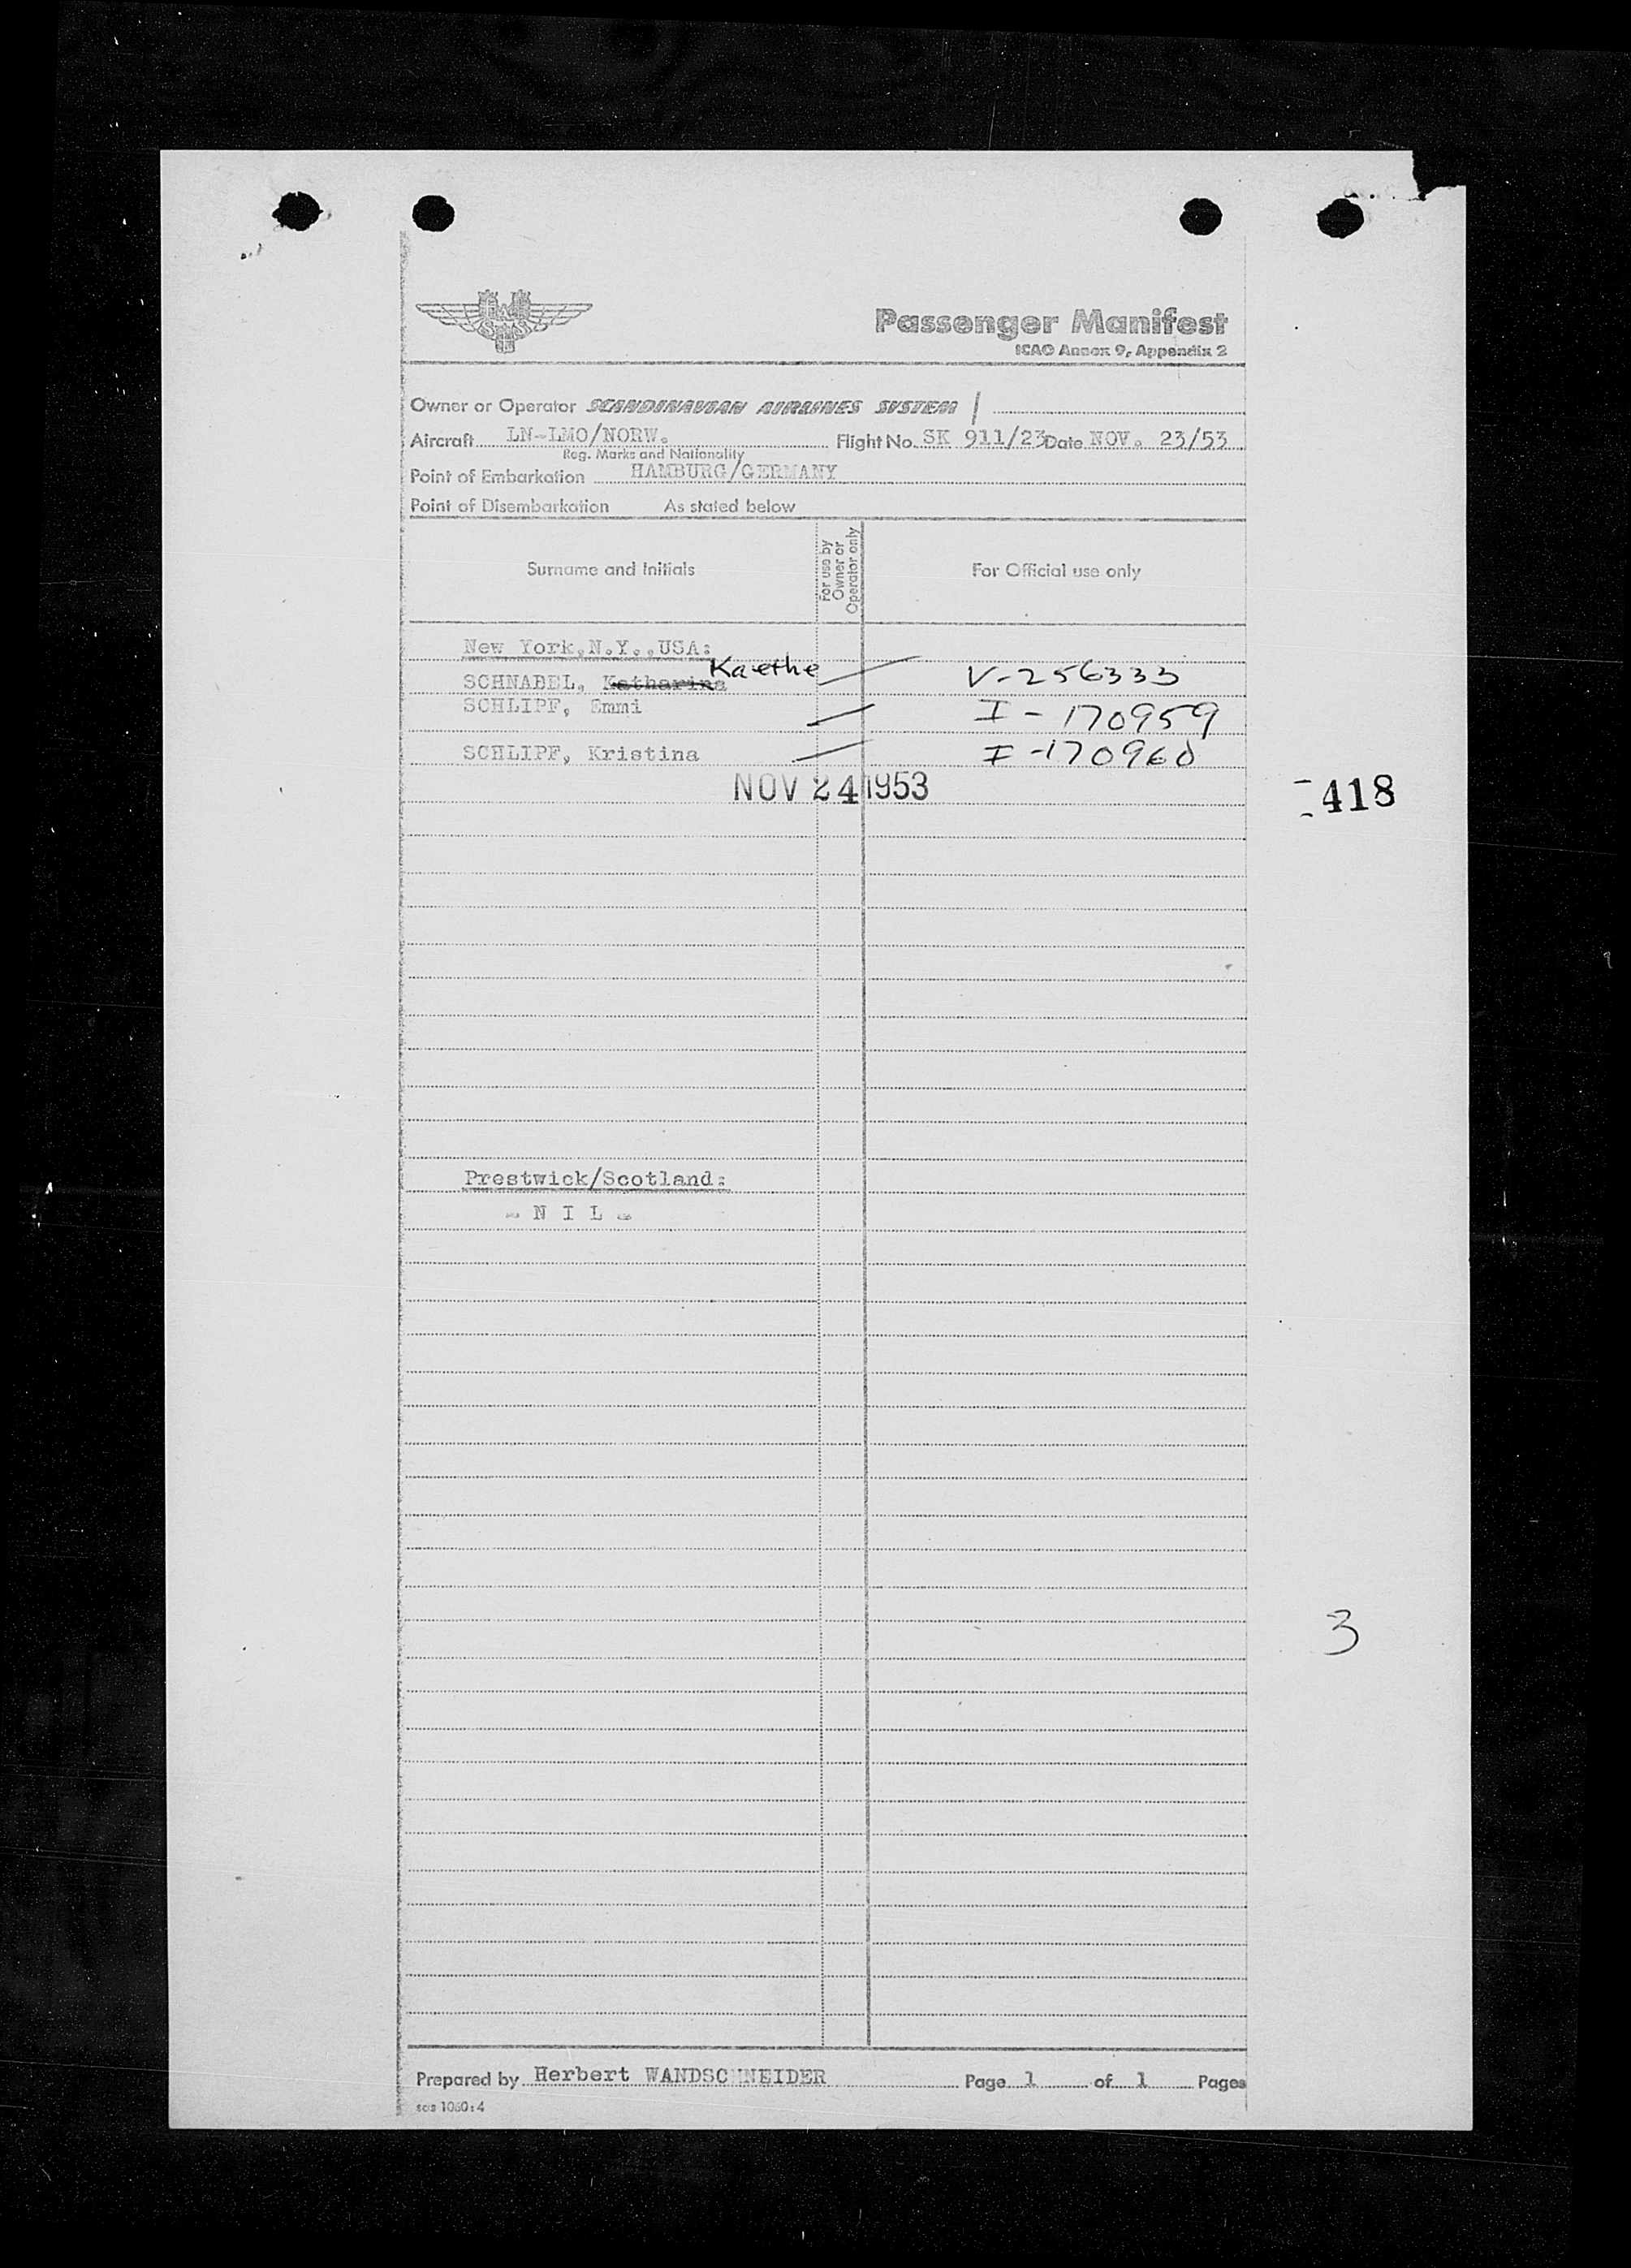 SAS
Passenger Manifest
ICAO Annex 9, Appendix 2
Owner or Operator SCANDINAVIAN AIRLINES SYSTEM
Aircraft LN-LMO/NORW. Flight No. SK 911/23 Date NOV. 23/53
Reg. Marks and Nationality
Point of Embarkation HAMBURG/GERMANY
Point of Disembarkation As stated below
Surname and Initials For use by Owner or Operator only For Official use only
New York,N.Y.,USA:
Kaethe
SCHNABEL, Katharina V-256333
SCHLIPF, Emmi I-170959
SCHLIPF, Kristina I-170960
NOV 24 1953
418
Prestwick/Scotland:
- N I L -
3
Prepared by Herbert WANDSCHNEIDER Page 1 of 1 Pages
sas 1060:4